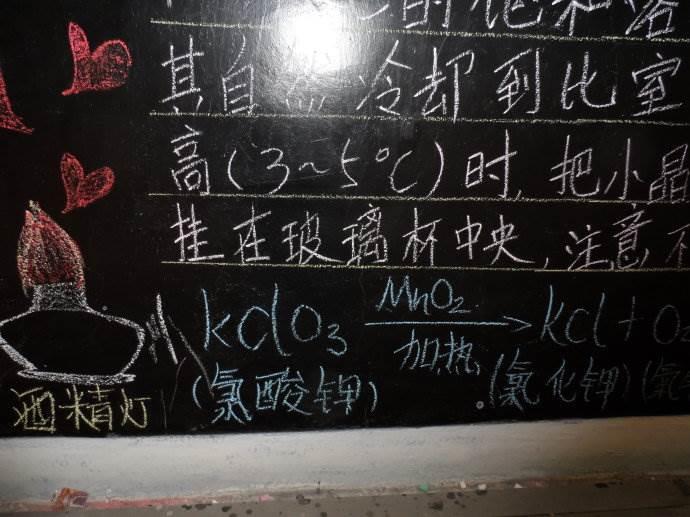 的饱和溶
其自然冷却到比室
高(3~5℃)时,把小晶
挂在玻璃杯中央,注意不
kclO3 MnO2 加热 kcl+O2
(氯酸钾) (氯化钾)(氧
酒精灯